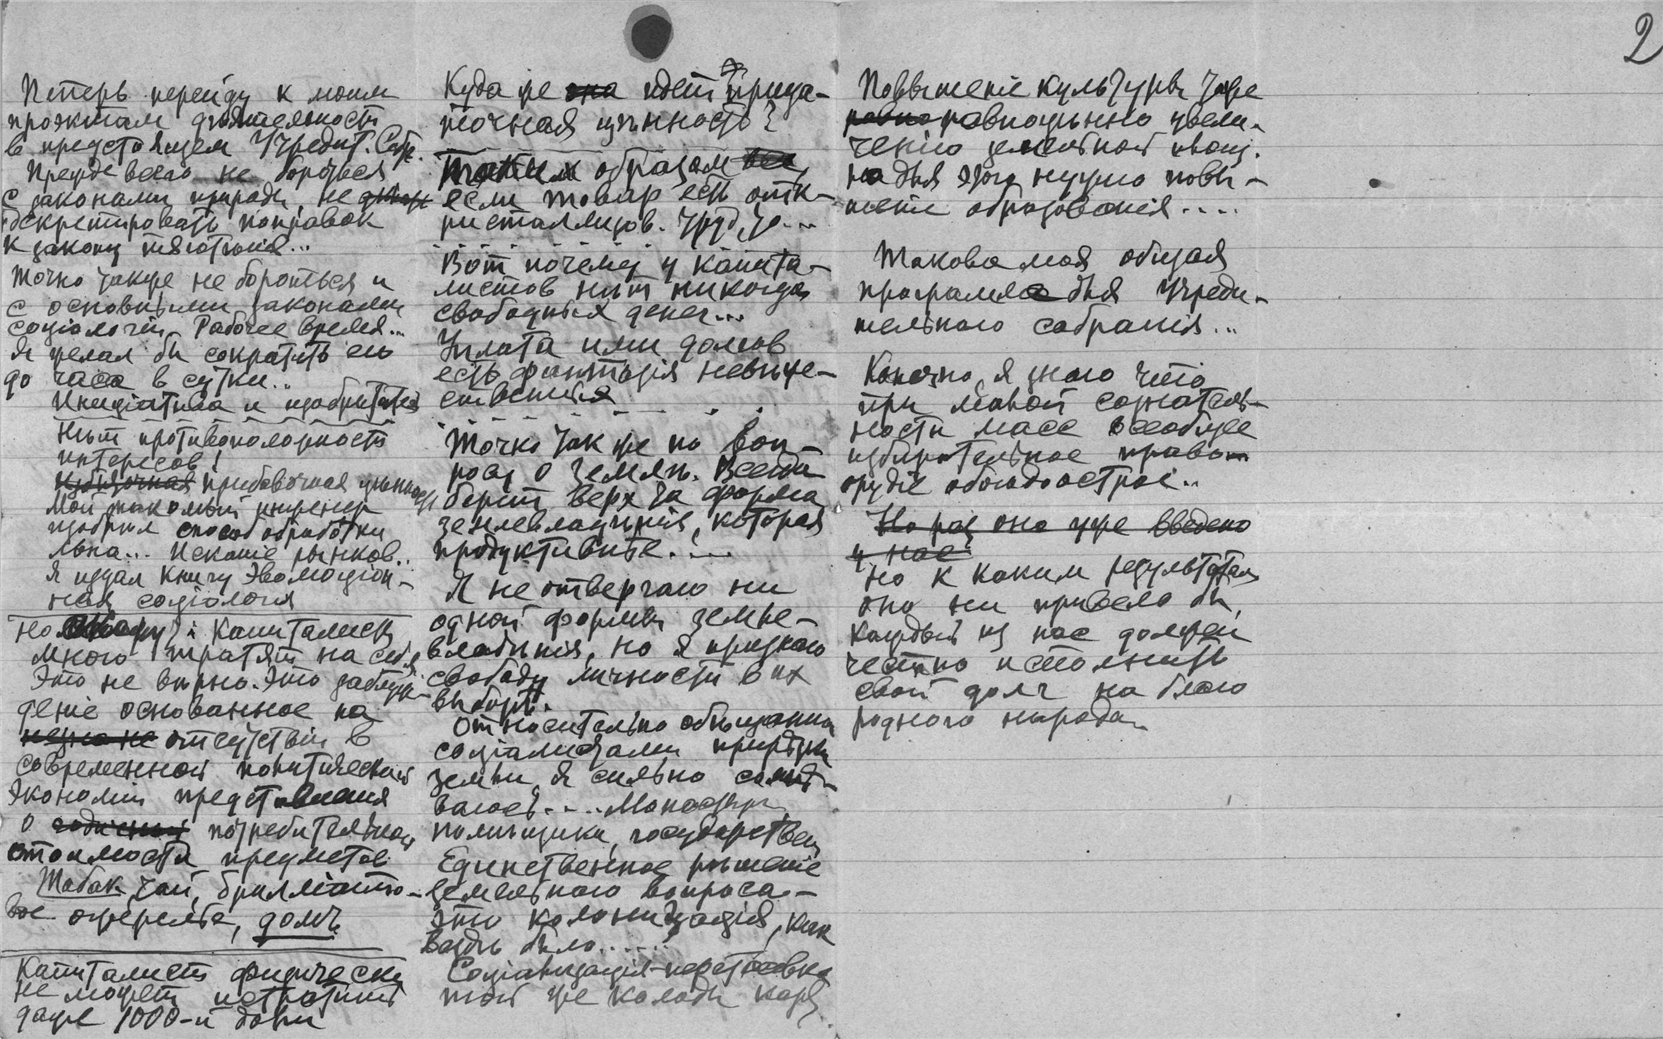 2
Теперь перейду к моим
проэктам деятельности
в предстоящем Учредит. Собр.
Прежде всего не бороться
с законами природы, не
декретировать поправок
к закону тяготенія...
Точно также не бороться и
с основными законами
соціологіи. Рабочее время...
Я желал бы сократить его
до часа в сутки..
Инициатива и изобритатель
Нѣт противоположности
интересов!
прибавочная цѣнность
Мой знакомый инженер
изобрѣл способ обработки
льна... Исканіе рынков..
Я издал книгу Эволюціон-
ная соціологія
Но капиталисты
много тратят на себя
Это не вѣрно. Это заблуж-
деніе основанное на
отсутствіи в
современной политической
экономіи представленія
о годичной потребительной
стоимости предметов
Табак, чай, брилліанто-
вое ожерелье, домъ
Капиталист физически
не может истратить
даже 1000-й доли
Куда же она идет прида-
точная цѣнность?
Таким образом все
если товар есть отк-
ристаллизов. труд, то...
Вот почему у капита-
листов нѣт никогда
свободных денег...
Уплата ими долгов
есть фантазія невѣже-
ственная
Точно так же по воп-
росу о землѣ. Всегда
берет верх та форма
землевладѣнія, которая
продуктивнѣе.....
Я не отвергаю ни
одной формы земле-
владѣнія, но я признаю
свободу личности в их
выборѣ.
Относительно обѣщанной
соціалистами прирѣзки
земли я сильно сомнѣ-
ваюсь.... Монастыри,
помѣщики, государствен
Единственное рѣшеніе
земельного вопроса —
это колонизація, как
вездѣ было......
Соціализація - перетасовка
той же колоды карт.
Повышеніе культуры тоже
равно равноцѣнно увели-
ченію земельной площ.
но для этого нужно повы-
шеніе образованія....
Такова моя общая
программа для Учреди-
тельного собранія...
Конечно, я знаю что
при малой сознатель-
ности масс всеобщее
избирательное право
орудіе обоюдоострое..
Но раз оно уже введено
у нас
Но к каким результатам
оно ни привело бы,
каждый из нас должен
честно исполнить
свой долг на благо
родного народа